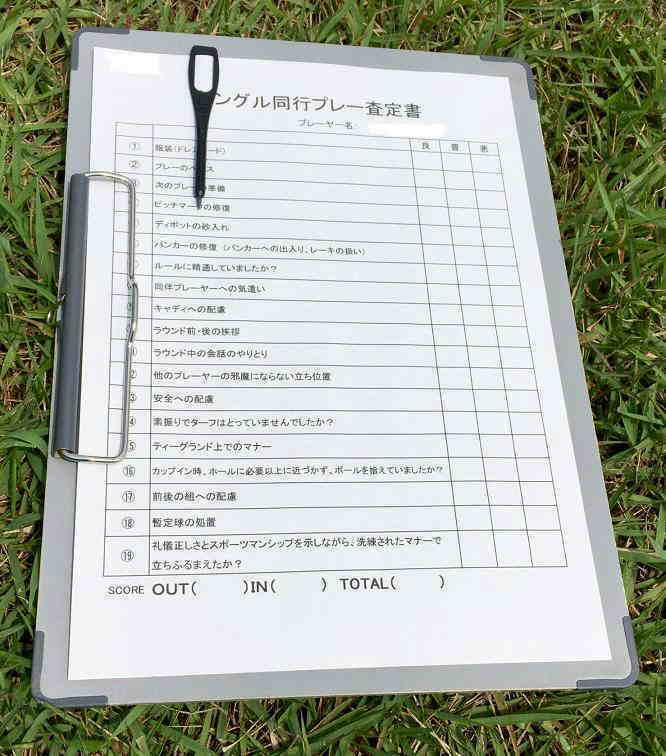 ングル同行プレー査定書
プレーヤー名:
良 普 悪
① 服装(ドレスコード)
② プレーのペース
次のプレーの準備
ピッチマークの修復
ディボットの砂入れ
バンカーの修復 (バンカーへの出入り、レーキの扱い)
ルールに精通していましたか?
同伴プレーヤーへの気遣い
キャディへの配慮
ラウンド前・後の挨拶
ラウンド中の会話のやりとり
② 他のプレーヤーの邪魔にならない立ち位置
③ 安全への配慮
④ 素振りでターフはとっていませんでしたか?
⑤ ティーグランド上でのマナー
⑯ カップイン時、ホールに必要以上に近づかず、ボールを拾えていましたか?
⑰ 前後の組への配慮
⑱ 暫定球の処置
⑲ 礼儀正しさとスポーツマンシップを示しながら、洗練されたマナーで
立ちふるまえたか?
SCORE OUT( )IN( ) TOTAL( )